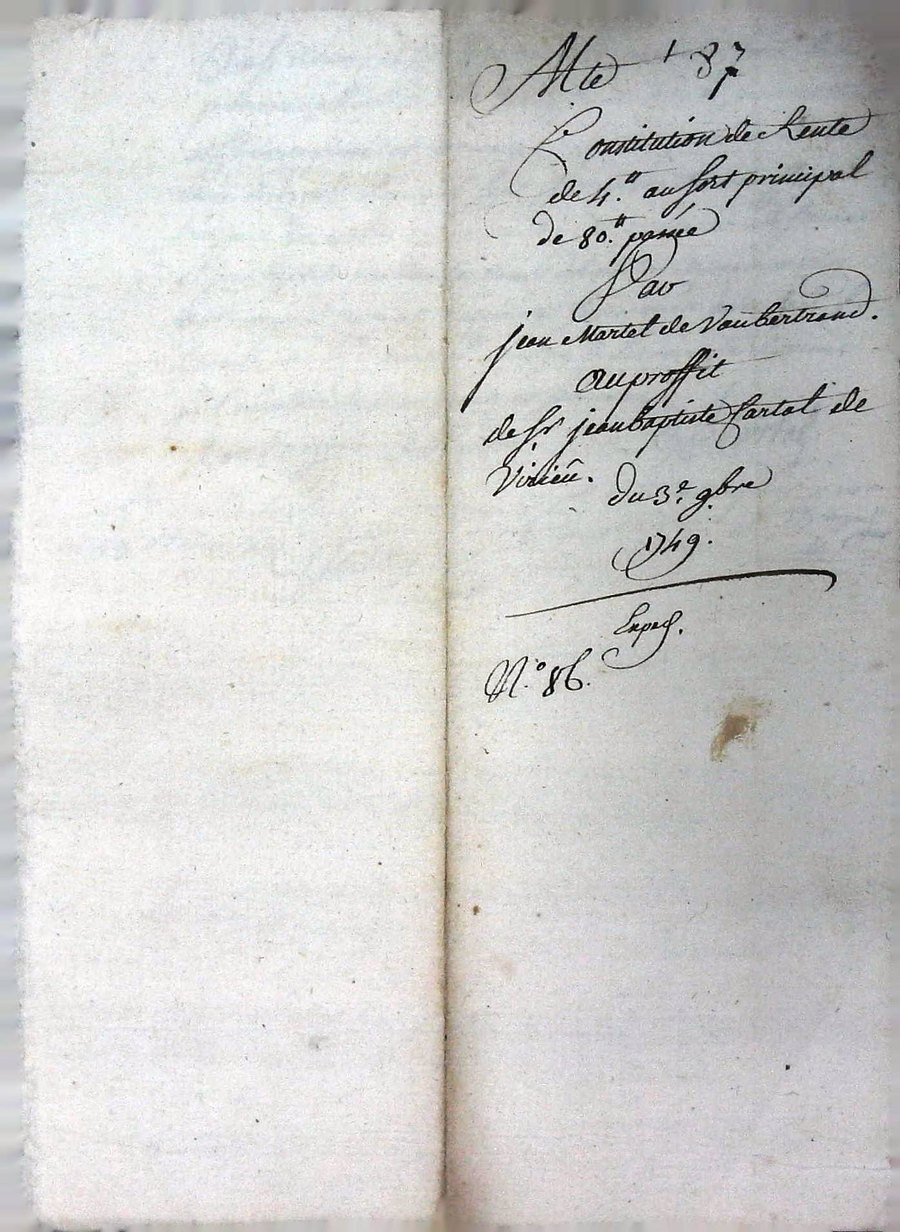 Constitution de Rente
de 4.tt au sort principal
de 80.tt passée
Par
jean Martel de Vaubertrand.
au proffit
de Sr jean baptiste Cartal de
Virieu.
du 3.e 9bre
1749.
Exped.
N.o 86.